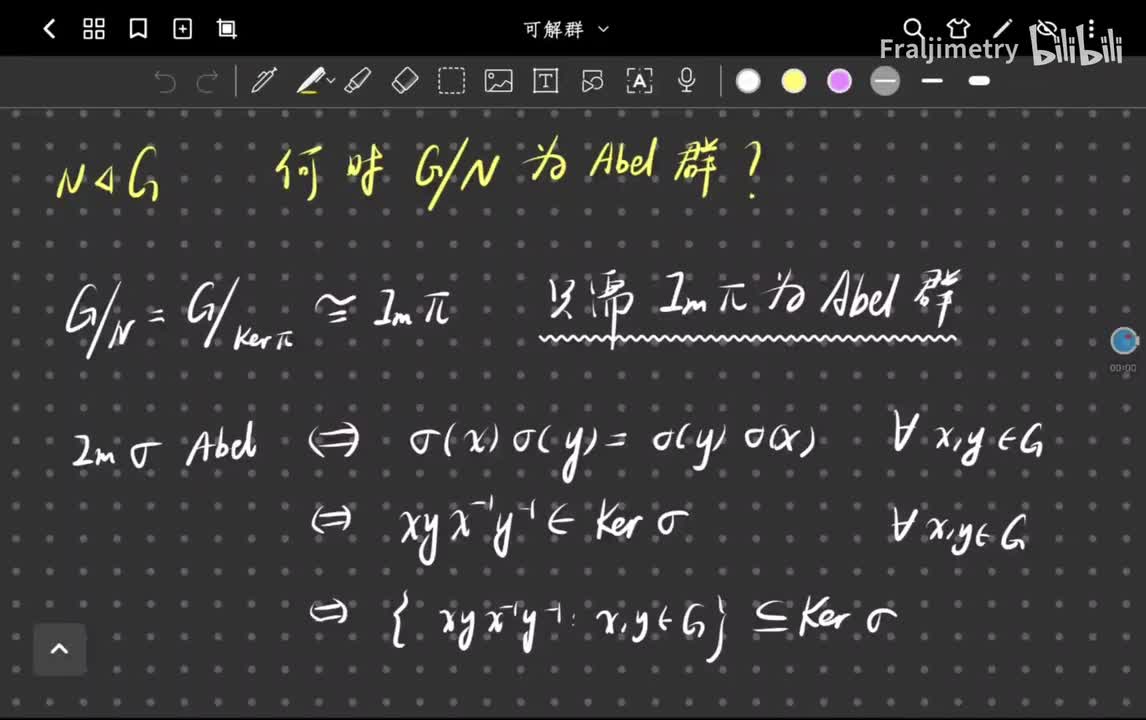 可解群
Fraljimetry bilibili
N ◁ G 何时 G/N 为 Abel 群?
G/N = G/Ker π ≅ Im π 只需 Im π 为 Abel 群
00:00
Im σ Abel ⇔ σ(x) σ(y) = σ(y) σ(x) ∀ x,y ∈ G
⇔ xyx⁻¹y⁻¹ ∈ Ker σ ∀ x,y ∈ G
⇔ { xyx⁻¹y⁻¹ : x,y ∈ G } ⊆ Ker σ